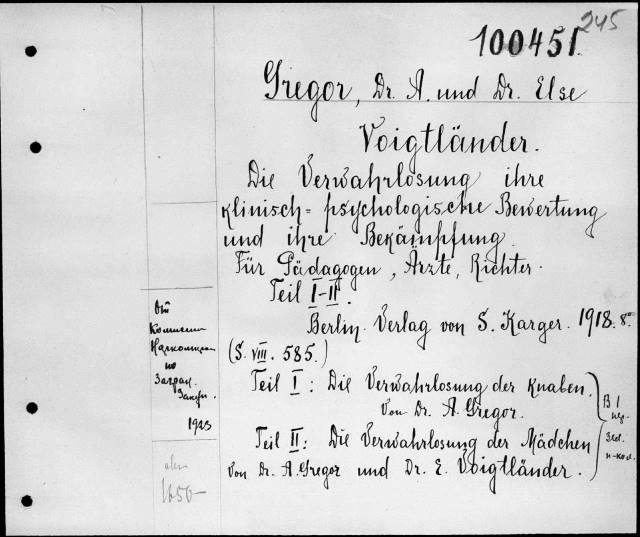 245
100451.
Gregor, Dr. A. und Dr. Else
Voigtländer.
Die Verwahrlosung ihre
klinisch=psychologische Bewertung
und ihre Bekämpfung.
Für Pädagogen, Ärzte, Richter.
Teil I-II.
Berlin. Verlag von S. Karger. 1918. 8°
(S. VIII. 585.)
Teil I: Die Verwahrlosung der Knaben.
Von Dr. A. Gregor.
Teil II: Die Verwahrlosung der Mädchen
Von Dr. A. Gregor und Dr. E. Voigtländer.
В 1
пер.
От
Комиссии
по
Загран.
Закуп.
1923
1650-